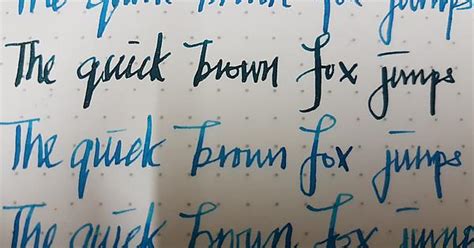 The quick brown fox jumps
The quick brown fox jumps
The quick brown fox jumps
The quick brown fox jumps